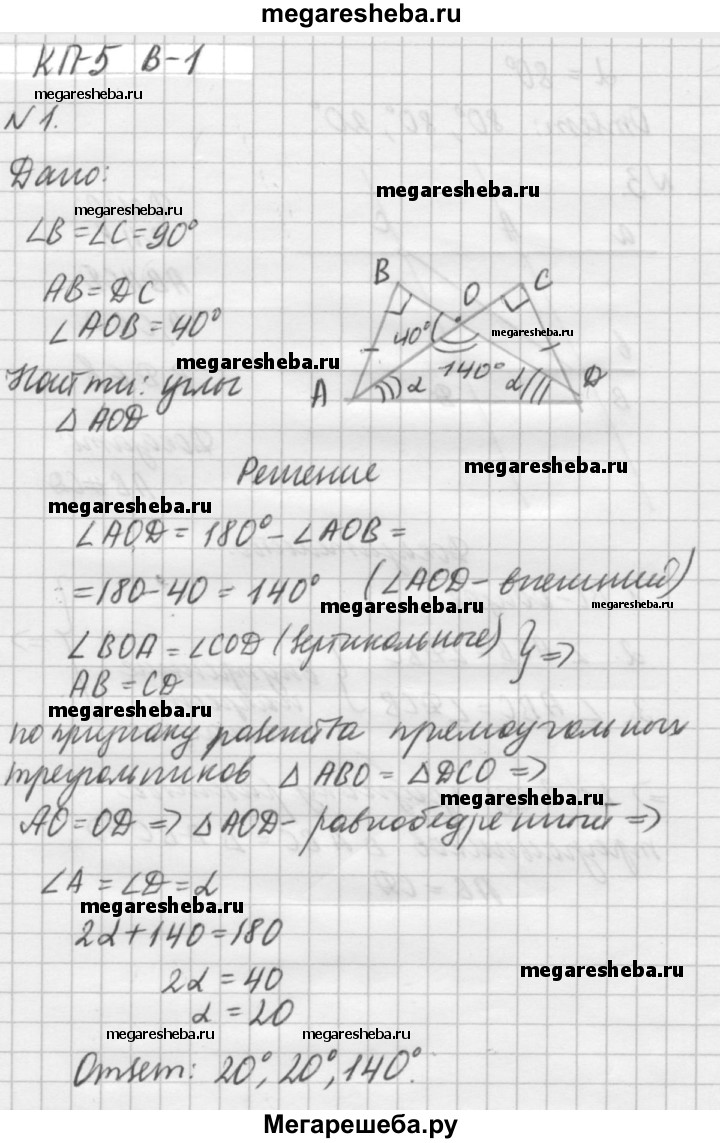 megaresheba.ru
КП-5 В-1
megaresheba.ru
N 1.
Дано:
megaresheba.ru
megaresheba.ru
∠B = ∠C = 90°
AB = DC
∠AOB = 40°
megaresheba.ru
Найти: углы
△ AOD
B
O
C
40°
megaresheba.ru
140°
A
α
α
D
Решение
megaresheba.ru
megaresheba.ru
∠AOD = 180° - ∠AOB =
= 180 - 40 = 140° (∠AOD - внешний)
megaresheba.ru
megaresheba.ru
∠BOA = ∠COD (вертикальные) } =>
AB = CD
megaresheba.ru
по признаку равенства прямоугольных
треугольников △ ABO = △DCO =>
megaresheba.ru
AO = OD => △AOD - равнобедренный =>
∠A = ∠D = α
megaresheba.ru
2α + 140 = 180
2α = 40
megaresheba.ru
α = 20
megaresheba.ru
megaresheba.ru
Ответ: 20°, 20°, 140°.
Мегарешеба.ру